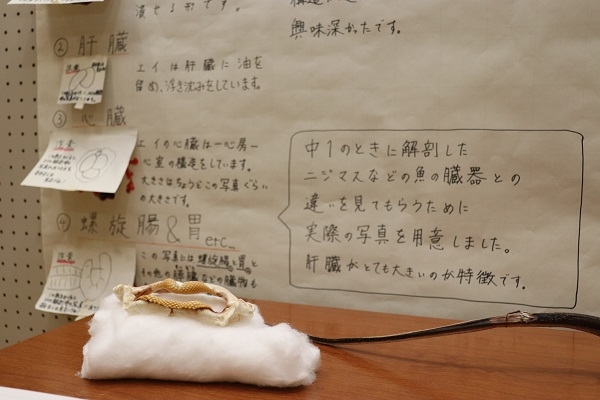 漬せる形です。
興味深かったです。
② 肝臓
エイは肝臓に油を
留め、浮き沈みをしています。
③ 心臓
エイの心臓は一心房一
心室の構造をしています。
大きさはちょうどこの写真ぐらい
の大きさです。
④ 螺旋腸&胃
etc...
この写真には螺旋腸と胃と
その他の膵臓などの臓物も
中1のときに解剖した
ニジマスなどの魚の臓器との
違いを見てもらうために
実際の写真を用意しました。
肝臓がとても大きいのが特徴です。